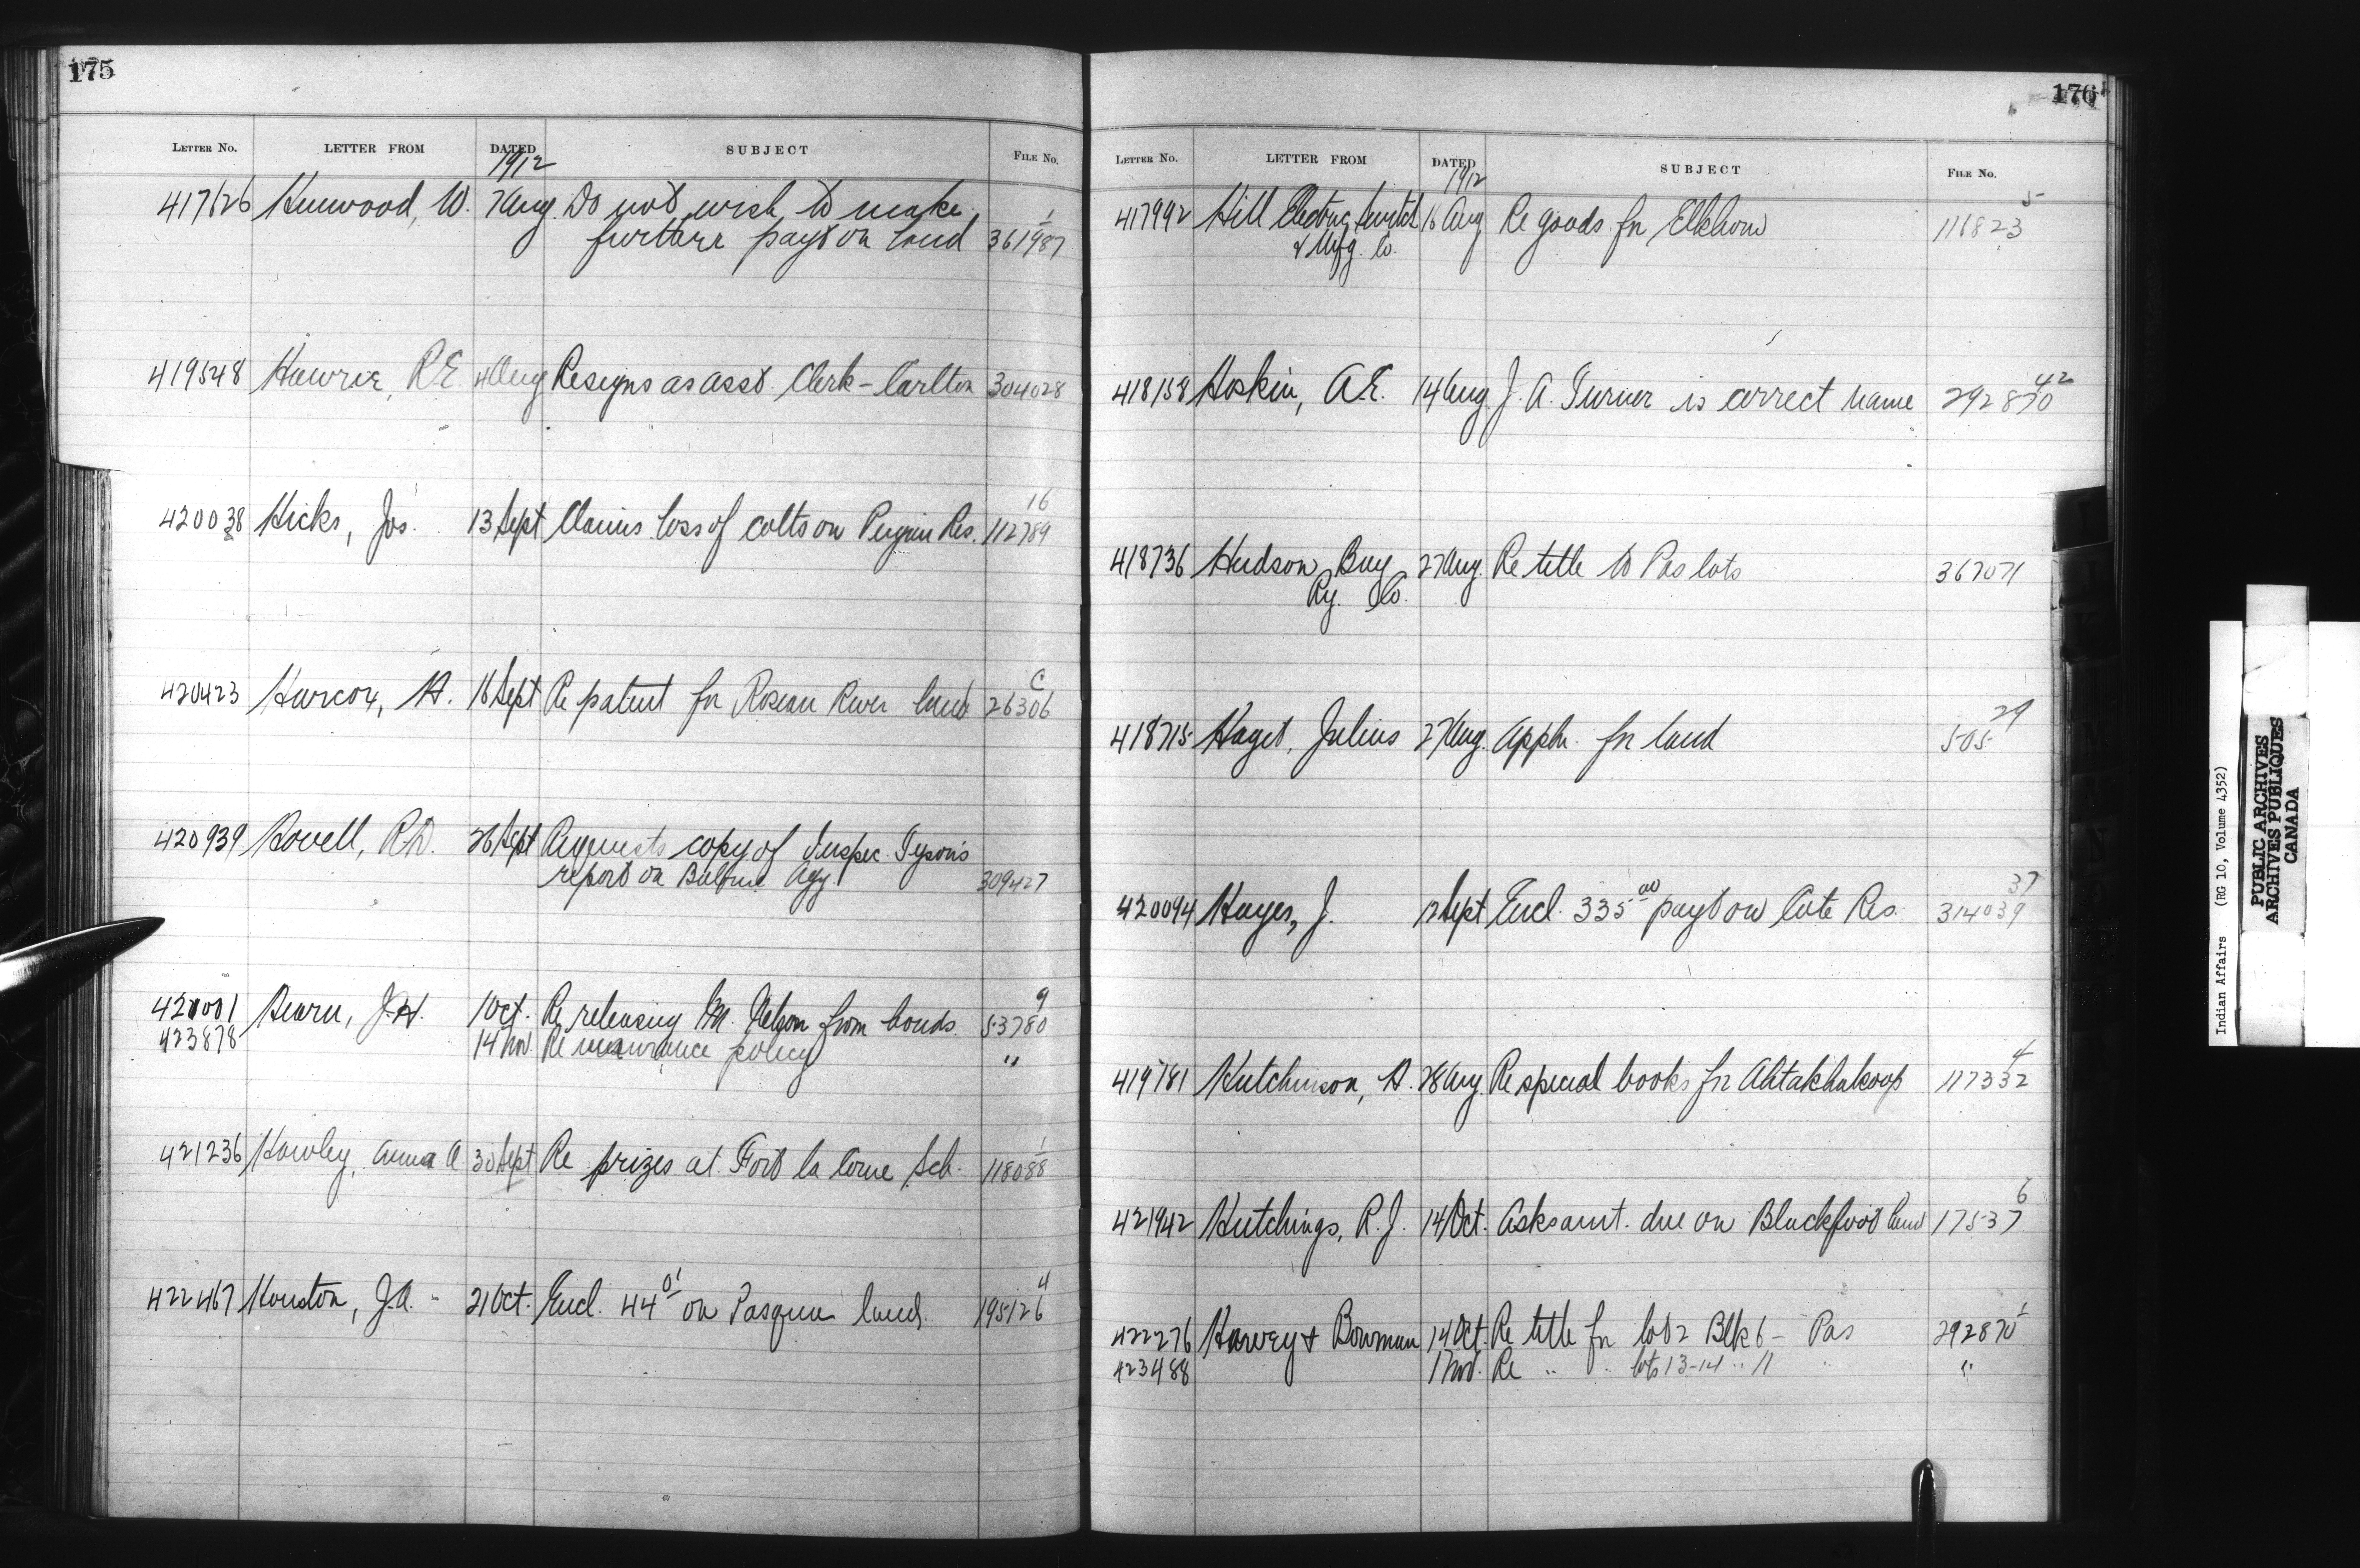 175
LETTER No. LETTER FROM DATED SUBJECT FILE No.
1912
417626 Henwood, W. 7 Aug. Do not wish to make
further payt on land 361987 1
419548 Hawrie, R.E. 4 Aug Resigns as asst. Clerk - Carlton 304028
420038 Hicks, Jos. 13 Sept Claims loss of colts on Peigan Res. 112789 16
420423 Harcox, H. 16 Sept Re patent for Roseau River land 26306 C
420939 Howell, R.D. 26 Sept Requests copy of Inspec. Tyson's
report on Birtle Agy 309427
421001 Hearn, J.H. 1 Oct. Re releasing M. Nelson from bonds. 53780 9
423878 14 Nov Re insurance policy "
421236 Hawley, Anna A 30 Sept Re prizes at Fort la Corne Sch. 118088 1
422467 Houston, J.A. 21 Oct. Encl. 44 01 on Pasqua land. 195126 4
176
LETTER No. LETTER FROM DATED SUBJECT FILE No.
1912
417992 Hill Electric Switch 16 Aug Re goods for Elkhorn 116823 5
& Mfg. Co.
418158 Hoskin, A.E. 14 Aug. J.A. Turner is correct name 292870 42
418736 Hudson Bay 27 Aug. Re title to Pas lots 367071
Ry. Co.
418715 Haget, Julius 27 Aug. Appln. for land 505 29
420094 Hayes, J. 12 Sept Encl. 335 00 payt on Cote Res. 314039 37
419181 Hutchinson, A. 28 Aug. Re special books for Ahtakhakoop 117332 4
421942 Hutchings, R.J. 14 Oct. Asks amt. due on Blackfoot land 17537 6
422276 Harvey & Bowman 14 Oct. Re title for lot 2 Blk 6 - Pas 292870 1
423488 1 Nov. Re " " lots 13-14 " 11 " "
Indian Affairs (RG 10, Volume 4352)
PUBLIC ARCHIVES
ARCHIVES PUBLIQUES
CANADA